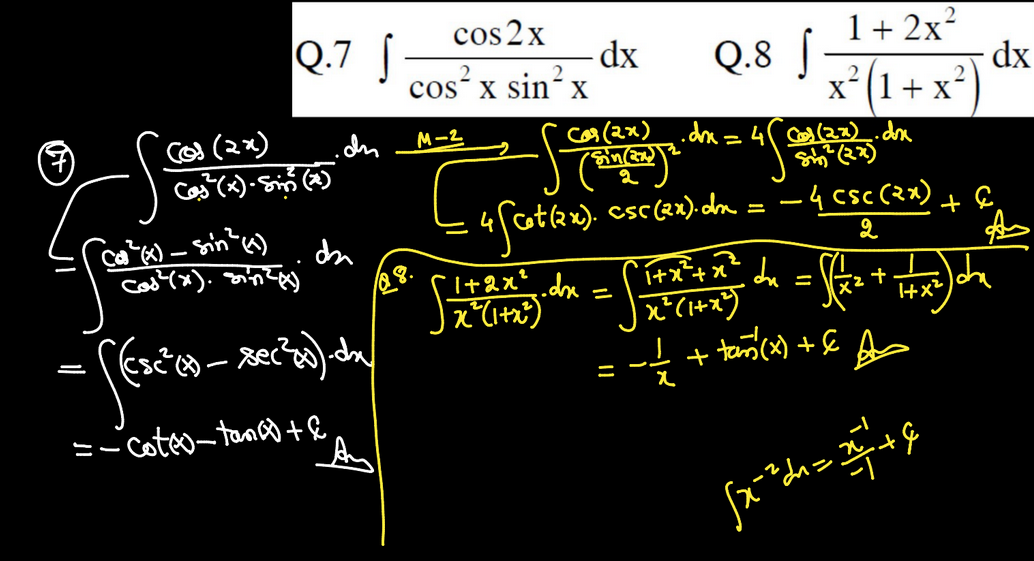 Q.7 ∫ cos2x / (cos² x sin² x) dx Q.8 ∫ (1 + 2x²) / (x²(1 + x²)) dx
⑦ ∫ cos(2x) / (cos²(x)·sin²(x)) · dx
= ∫ (cos²(x) – sin²(x)) / (cos²(x)·sin²(x)) · dx
= ∫ (csc²(x) – sec²(x))·dx
= – cot(x) – tan(x) + C Ans
M-2 → ∫ cos(2x) / (sin(2x)/2)² · dx = 4∫ cos(2x) / sin²(2x) · dx
= 4∫ cot(2x)· csc(2x)·dx = – 4 csc(2x) / 2 + C Ans
Q8. ∫ (1+2x²) / (x²(1+x²)) · dx = ∫ (1+x²+x²) / (x²(1+x²)) dx = ∫(1/x² + 1/(1+x²)) dx
= – 1/x + tan⁻¹(x) + C Ans
∫x⁻² dx = x⁻¹/–1 + C